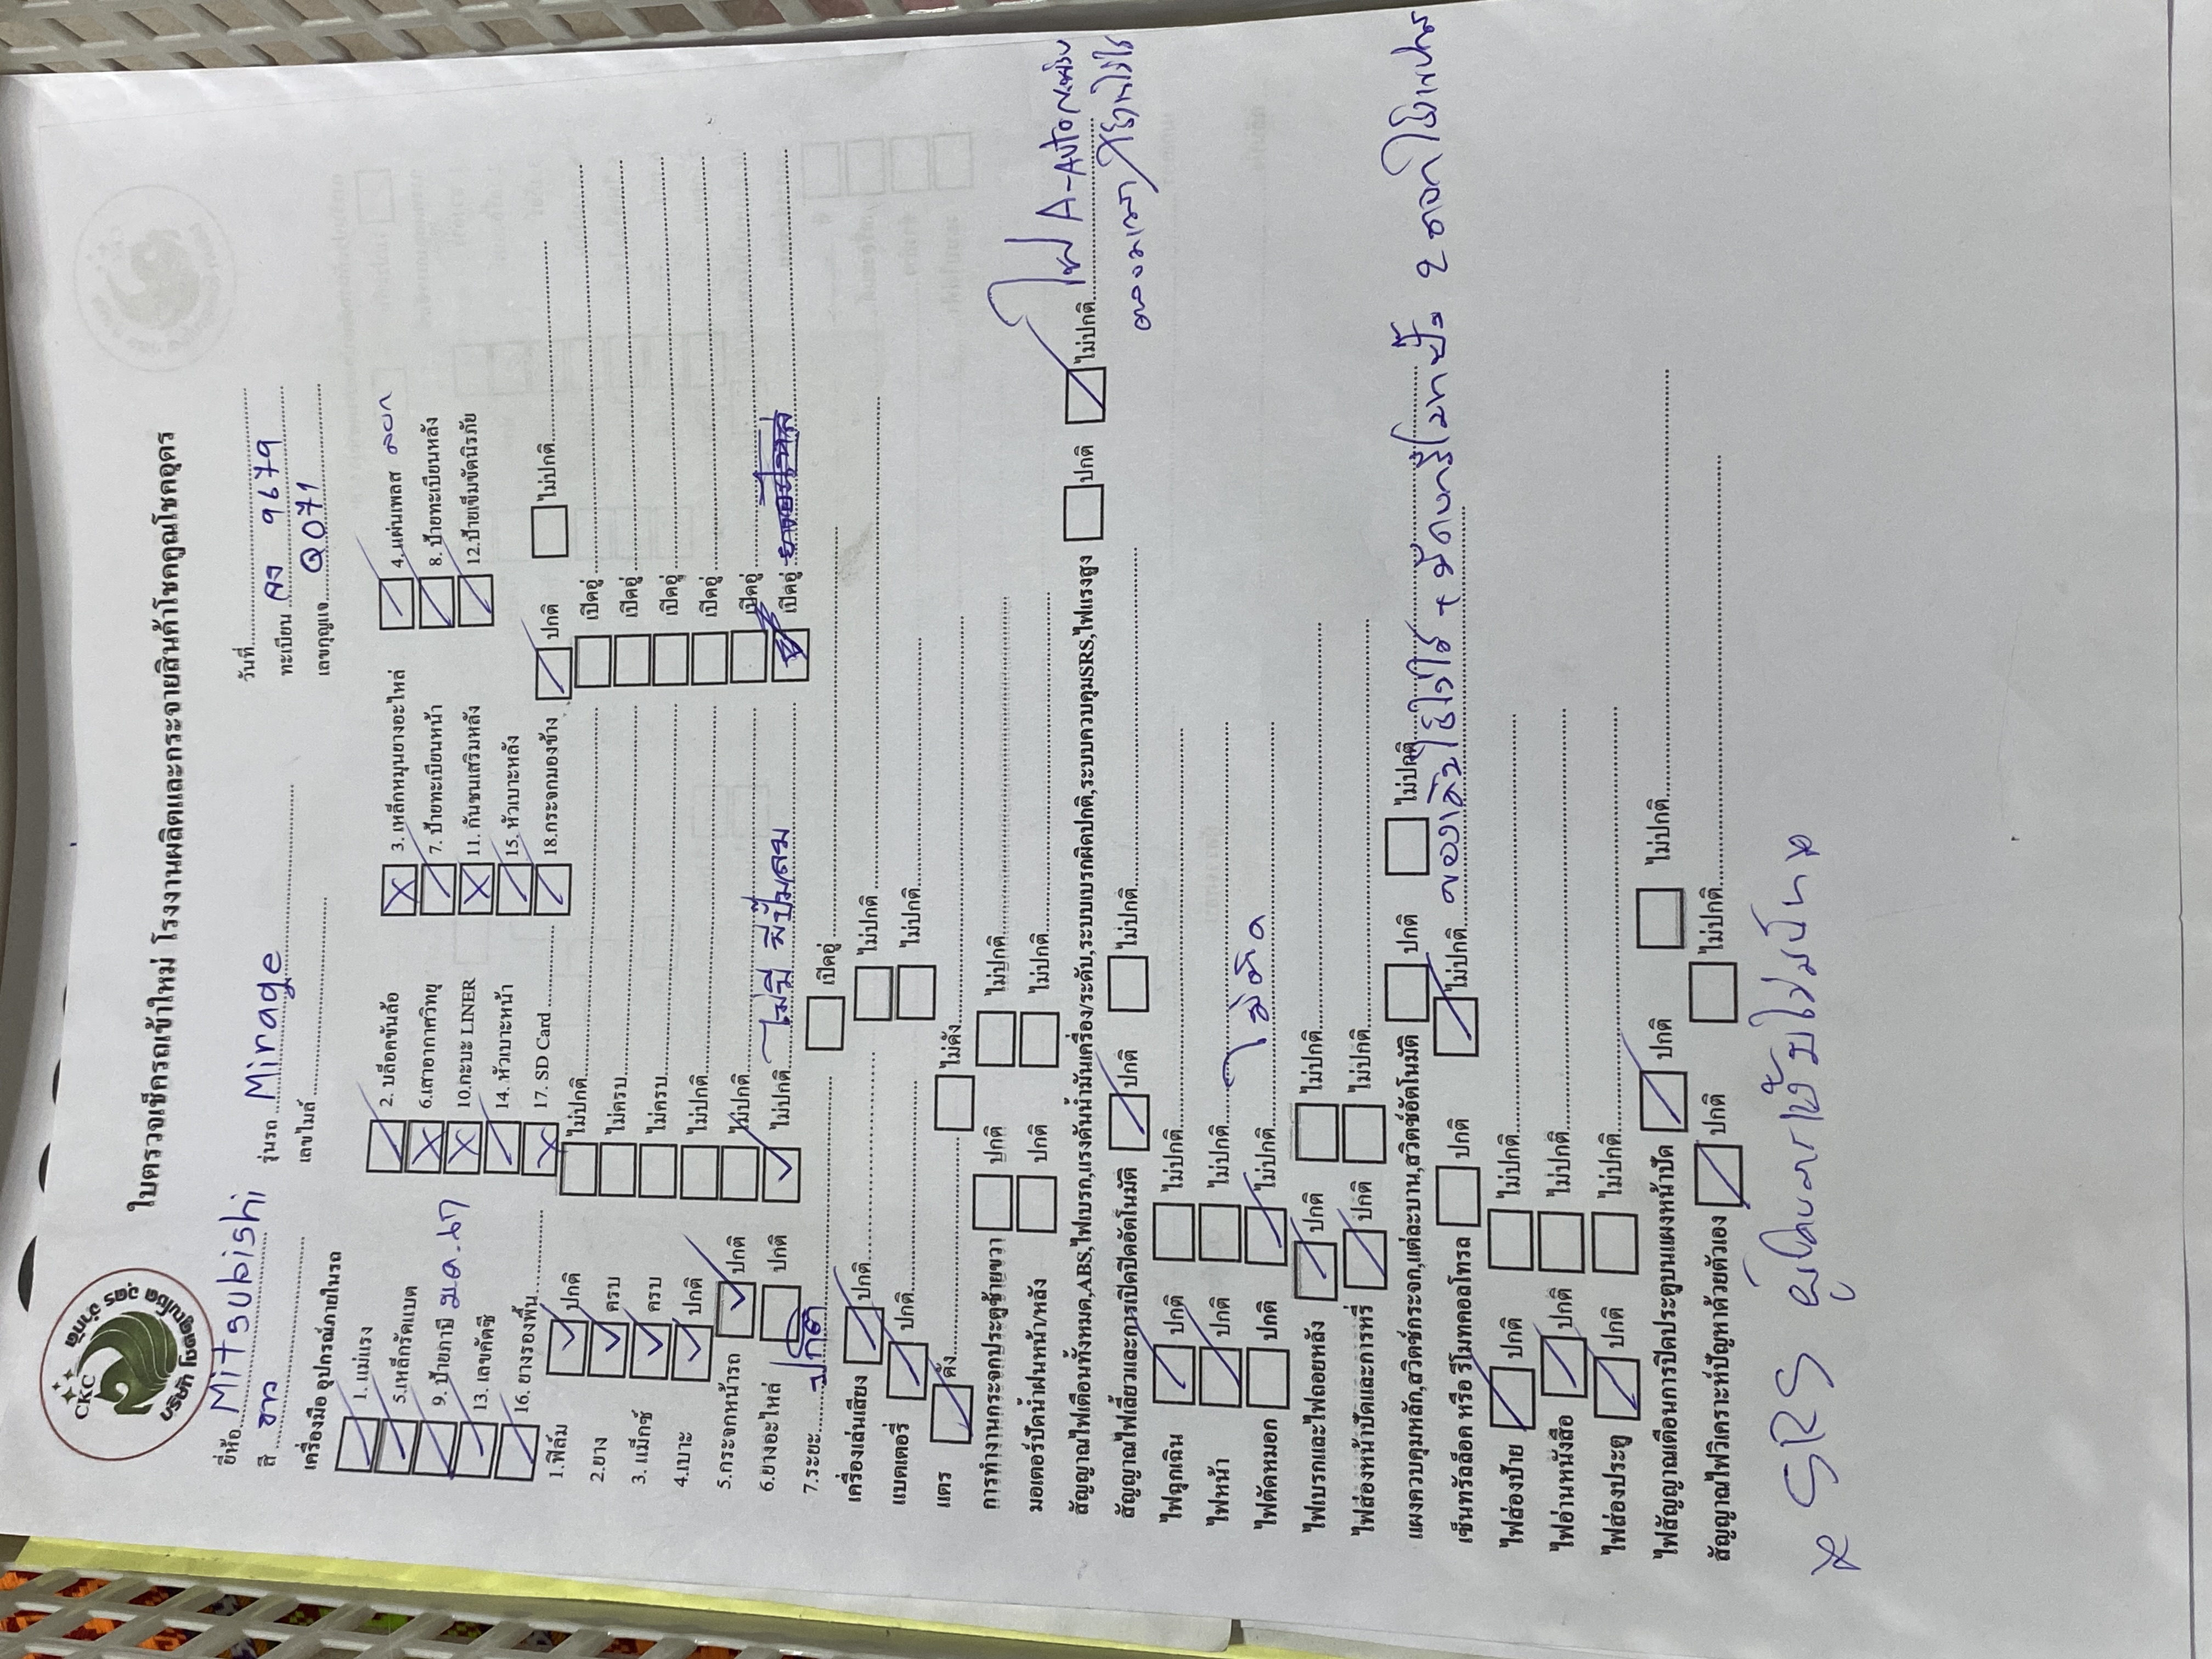 CKC
บริษัท โชคคูณโชค อุดร จำกัด
ใบตรวจเช็ครถเข้าใหม่ โรงงานผลิตและกระจายสินค้าโชคคูณโชคอุดร
วันที่
ยี่ห้อ Mitsubishi รุ่นรถ Mirage ทะเบียน 9679
สี ขาว เลขไมล์ เลขกุญแจ Q071
เครื่องมือ อุปกรณ์ภายในรถ
1. แม่แรง 2. บล็อคขันล้อ 3. เหล็กหมุนยางอะไหล่ 4.แผ่นเพลส ลอก
5.เหล็กรัดแบต 6.เสาอากาศวิทยุ 7. ป้ายทะเบียนหน้า 8. ป้ายทะเบียนหลัง
9. ป้ายภาษี 10.กะบะ LINER 11. กันชนเสริมหลัง 12.ป้ายเข็มขัดนิรภัย
13. เลขคัตซี 14. หัวเบาะหน้า 15. หัวเบาะหลัง
16. ยางรองพื้น 17. SD Card 18.กระจกมองข้าง ปกติ ไม่ปกติ
1.ฟิล์ม ปกติ ไม่ปกติ เปิดอู่
2.ยาง ครบ ไม่ครบ เปิดอู่
3. แม็กซ์ ครบ ไม่ครบ เปิดอู่
4.เบาะ ปกติ ไม่ปกติ เปิดอู่
5.กระจกหน้ารถ ปกติ ไม่ปกติ เปิดอู่
6.ยางอะไหล่ ปกติ ไม่ปกติ ไม่มี มีปั๊มลม เปิดอู่
7.ระยะ ปกติ เปิดอู่
เครื่องเล่นเสียง ปกติ ไม่ปกติ
แบตเตอรี่ ปกติ ไม่ปกติ
แตร ดัง ไม่ดัง
การทำงานกระจกประตูซ้ายขวา ปกติ ไม่ปกติ
มอเตอร์ปัดน้ำฝนหน้า/หลัง ปกติ ไม่ปกติ
สัญญาณไฟเตือนทั้งหมด,ABS,ไฟเบรก,แรงดันน้ำมันเครื่อง/ระดับ,ระบบเบรกผิดปกติ,ระบบควบคุมSRS,ไฟแรงสูง ปกติ ไม่ปกติ ไฟ A-Auto
สัญญาณไฟเลี้ยวและการเปิดปิดอัตโนมัติ ปกติ ไม่ปกติ
ไฟฉุกเฉิน ปกติ ไม่ปกติ
ไฟหน้า ปกติ ไม่ปกติ
ไฟตัดหมอก ปกติ ไม่ปกติ ไม่ติด
ไฟเบรกและไฟถอยหลัง ปกติ ไม่ปกติ
ไฟส่องหน้าปัดและการหรี่ ปกติ ไม่ปกติ
แผงควบคุมหลัก,สวิตช์กระจก,แต่ละบาน,สวิตช์อัตโนมัติ ปกติ ไม่ปกติ
เซ็นทรัลล็อค หรือ รีโมทคอลโทรล ปกติ ไม่ปกติ
ไฟส่องป้าย ปกติ ไม่ปกติ
ไฟอ่านหนังสือ ปกติ ไม่ปกติ
ไฟส่องประตู ปกติ ไม่ปกติ
ไฟสัญญาณเตือนการปิดประตูบนแผงหน้าปัด ปกติ ไม่ปกติ
สัญญาณไฟวิเคราะห์ปัญหาด้วยตัวเอง ปกติ ไม่ปกติ
* SRS